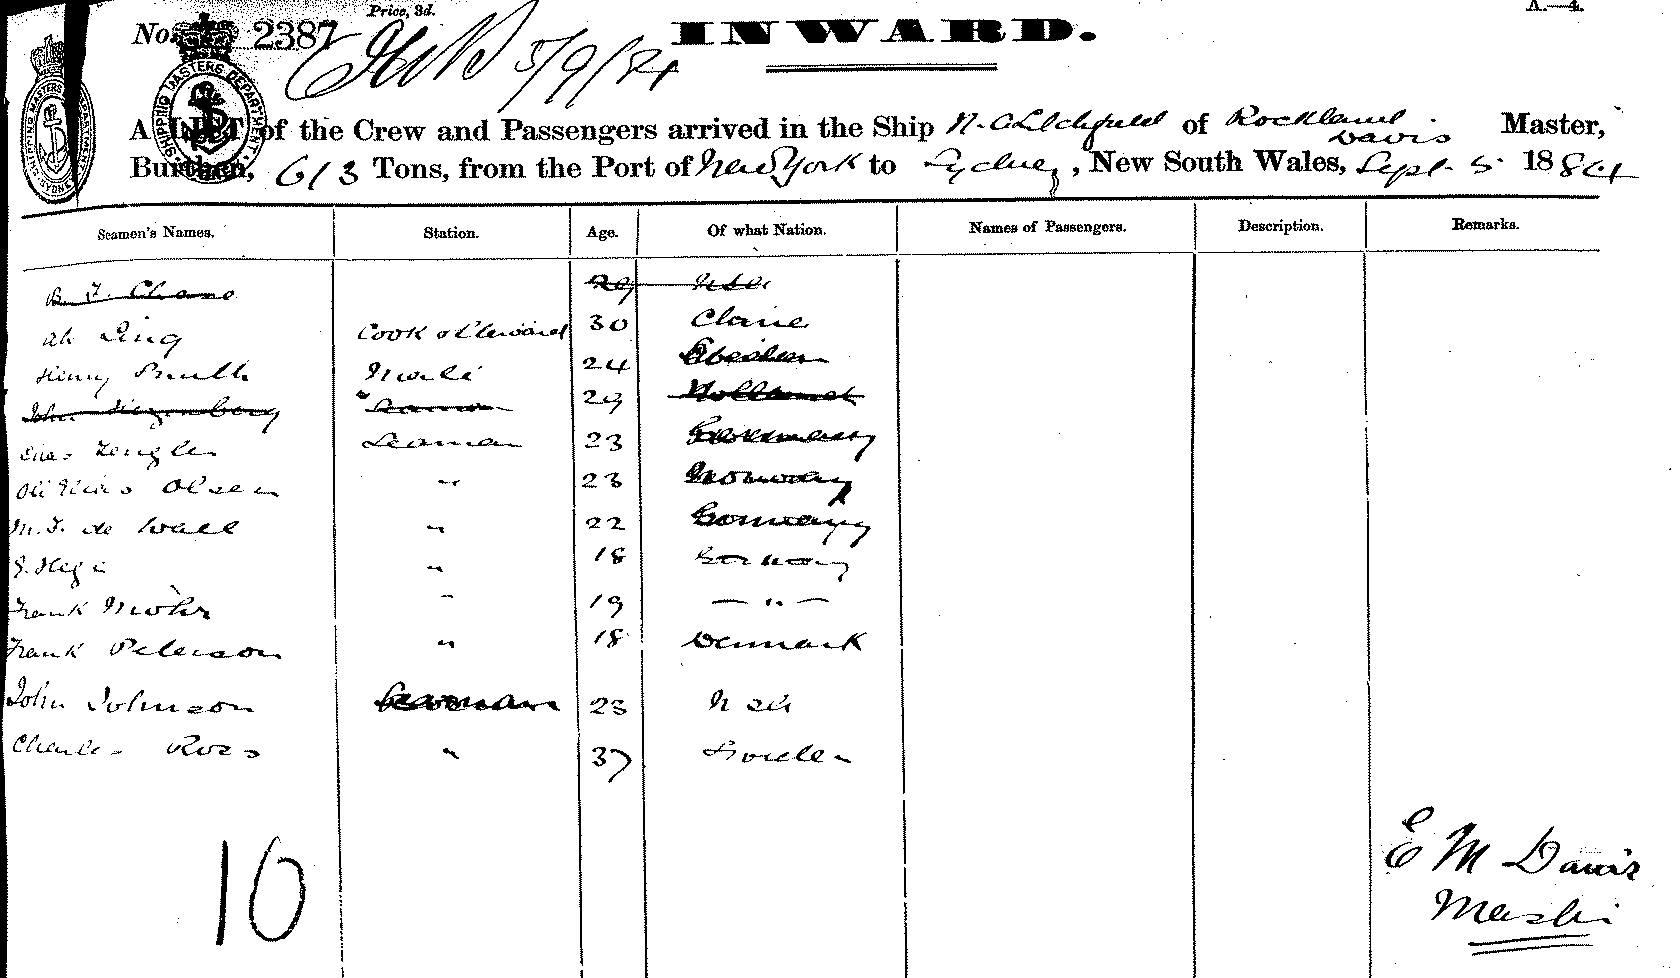 Price, 3d. A.—4.
No. 2387 5/9/84 INWARD.
SHIPPING MASTERS DEPARTMENT SYDNEY
A LIST of the Crew and Passengers arrived in the Ship N. C Litchfield of Rockland Davis Master,
Burthen, 613 Tons, from the Port of New York to Sydney, New South Wales, Sept. 5 1884
Seamen's Names. Station. Age. Of what Nation. Names of Passengers. Description. Remarks.
B. F. 29 USA
Ah Ling Cook & Steward 30 China
Henry Smith Mate 24
John 29 Holland
Seaman 23 Germany
Olsen " 23 Norway
M. J. de Wall " 22 Germany
" 18 Germany
Frank Mohr " 19 — " —
Frank Peterson " 18 Denmark
John Johnson Seaman 23 USA
Charles Ross " 37 Sweden
10
E M Davis
Master